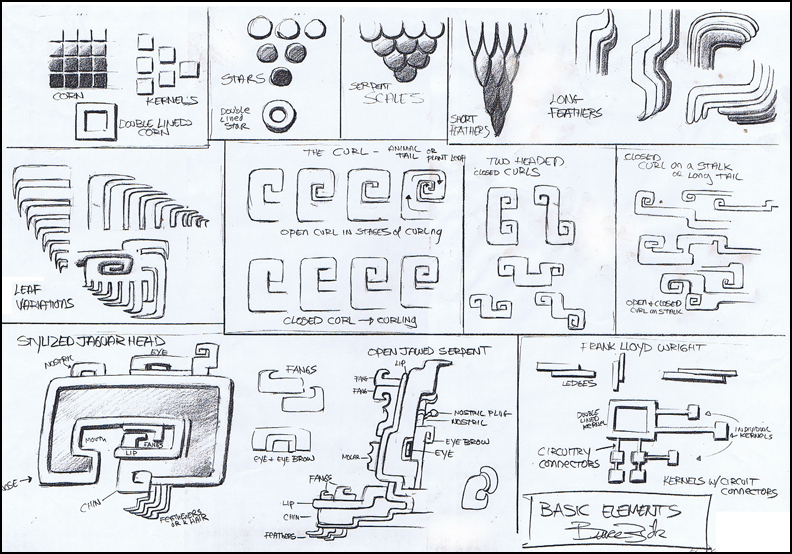 CORN
KERNELS
DOUBLE LINED
CORN
STARS
DOUBLE
LINED
STAR
SERPENT
SCALES
SHORT
FEATHERS
LONG
FEATHERS
LEAF
VARIATIONS
THE CURL - ANIMAL TAIL OR PLANT LEAF
OPEN CURL IN STAGES OF CURLING
CLOSED CURL → CURLING
TWO HEADED
CLOSED CURLS
CLOSED
CURL ON A STALK
OR LONG TAIL
OPEN & CLOSED
CURL ON STALK
STYLIZED JAGUAR HEAD
NOSTRIL
EYE
MOUTH
FANGS
LIP
NOSE →
CHIN
FEATHERS
OR HAIR
FANGS
EYE + EYE BROW
OPEN JAWED SERPENT
LIP
FANG
FANG
NOSTRIL PLUG
NOSTRIL
EYE BROW
EYE
MOLAR
FANGS
LIP
CHIN
FEATHERS
FRANK LLOYD WRIGHT
LEDGES
DOUBLE
LINED
KERNEL
INDIVIDUAL
KERNELS
CIRCUITRY
CONNECTORS
KERNELS W/CIRCUIT
CONNECTORS
BASIC ELEMENTS